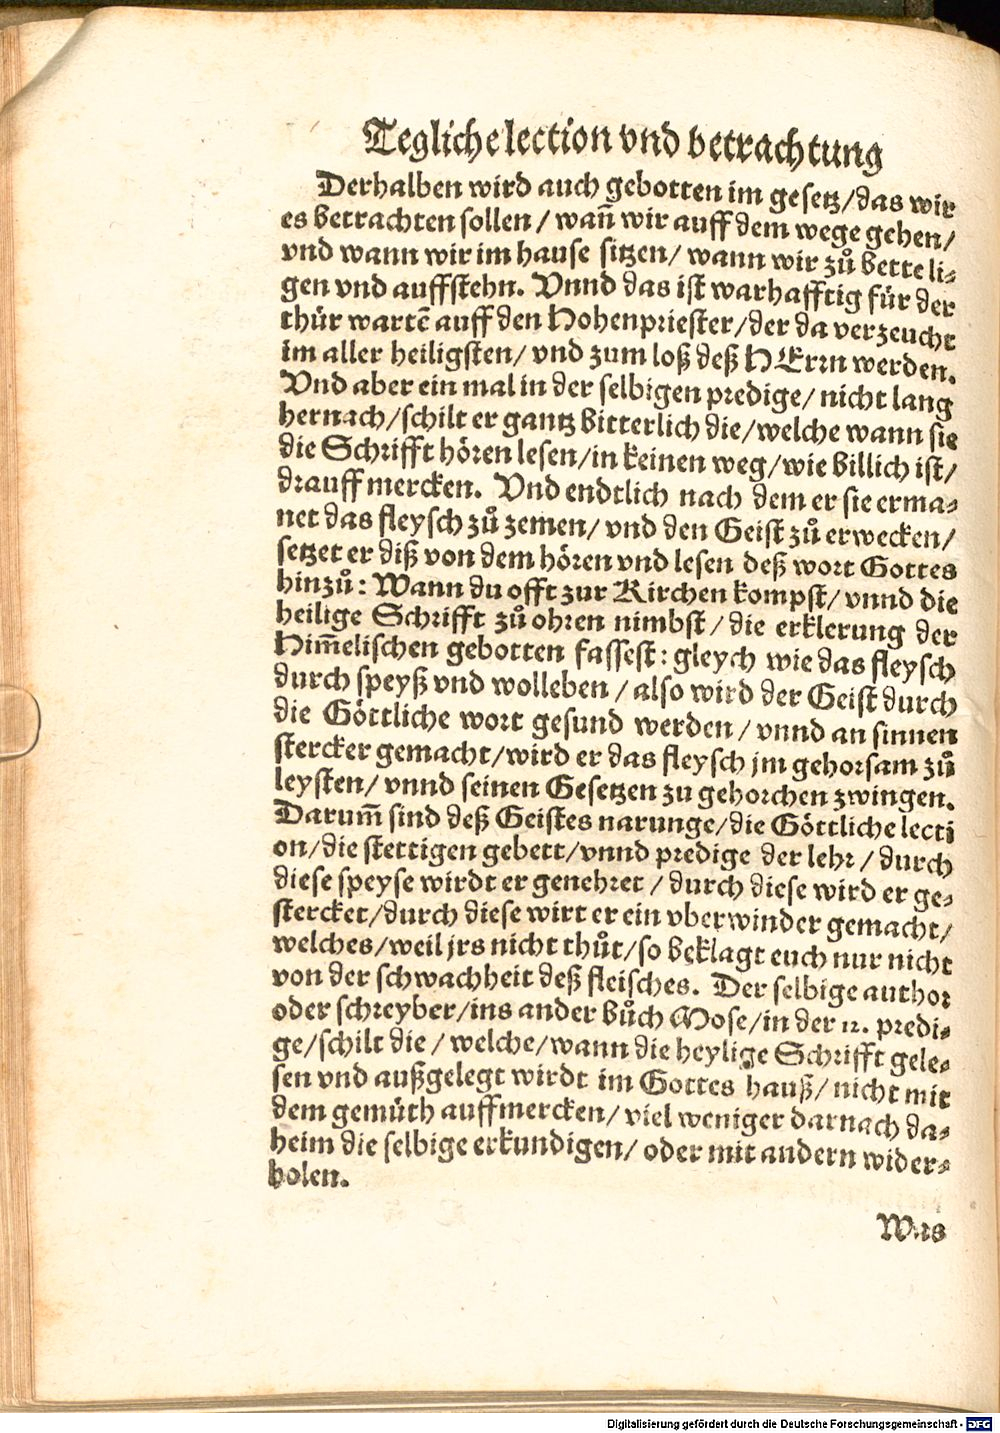 Tegliche lection vnd betrachtung
Derhalben wird auch gebotten im gesetz/das wir
es betrachten sollen / wañ wir auff dem wege gehen/
vnd wann wir im hause sitzen/ wann wir zů bette li-
gen vnd auffstehn. Vnnd das ist warhafftig für der
thür wartẽ auff den Hohenpriester/der da verzeucht
im aller heiligsten/ vnd zum loß deß HErrn werden.
Vnd aber ein mal in der selbigen predige/ nicht lang
hernach/schilt er gantz bitterlich die/welche wann sie
die Schrifft hören lesen/in keinen weg/wie billich ist/
drauff mercken. Vnd endtlich nach dem er sie erma-
net das fleysch zů zemen/ vnd den Geist zů erwecken/
setzet er diß von dem hören vnd lesen deß wort Gottes
hinzů: Wann du offt zur Kirchen kompst/ vnnd die
heilige Schrifft zů ohren nimbst / die erklerung der
Him̃elischen gebotten fassest: gleych wie das fleysch
durch speyß vnd wolleben / also wird der Geist durch
die Göttliche wort gesund werden / vnnd an sinnen
stercker gemacht/wird er das fleysch jm gehorsam zů
leysten/ vnnd seinen Gesetzen zu gehorchen zwingen.
Darum̃ sind deß Geistes narunge/die Göttliche lecti
on/die stettigen gebett/vnnd predige der lehr / durch
diese speyse wirdt er genehret / durch diese wird er ge-
stercket/durch diese wirt er ein vberwinder gemacht/
welches/weil jrs nicht thůt/so beklagt euch nur nicht
von der schwachheit deß fleisches. Der selbige author
oder schreyber/ins ander bůch Mose/in der 12. predi-
ge/schilt die / welche/wann die heylige Schrifft gele-
sen vnd außgelegt wirdt im Gottes hauß/ nicht mit
dem gemüth auffmercken/ viel weniger darnach da-
heim die selbige erkundigen/ oder mit andern wider-
holen.
Was
Digitalisierung gefördert durch die Deutsche Forschungsgemeinschaft - DFG